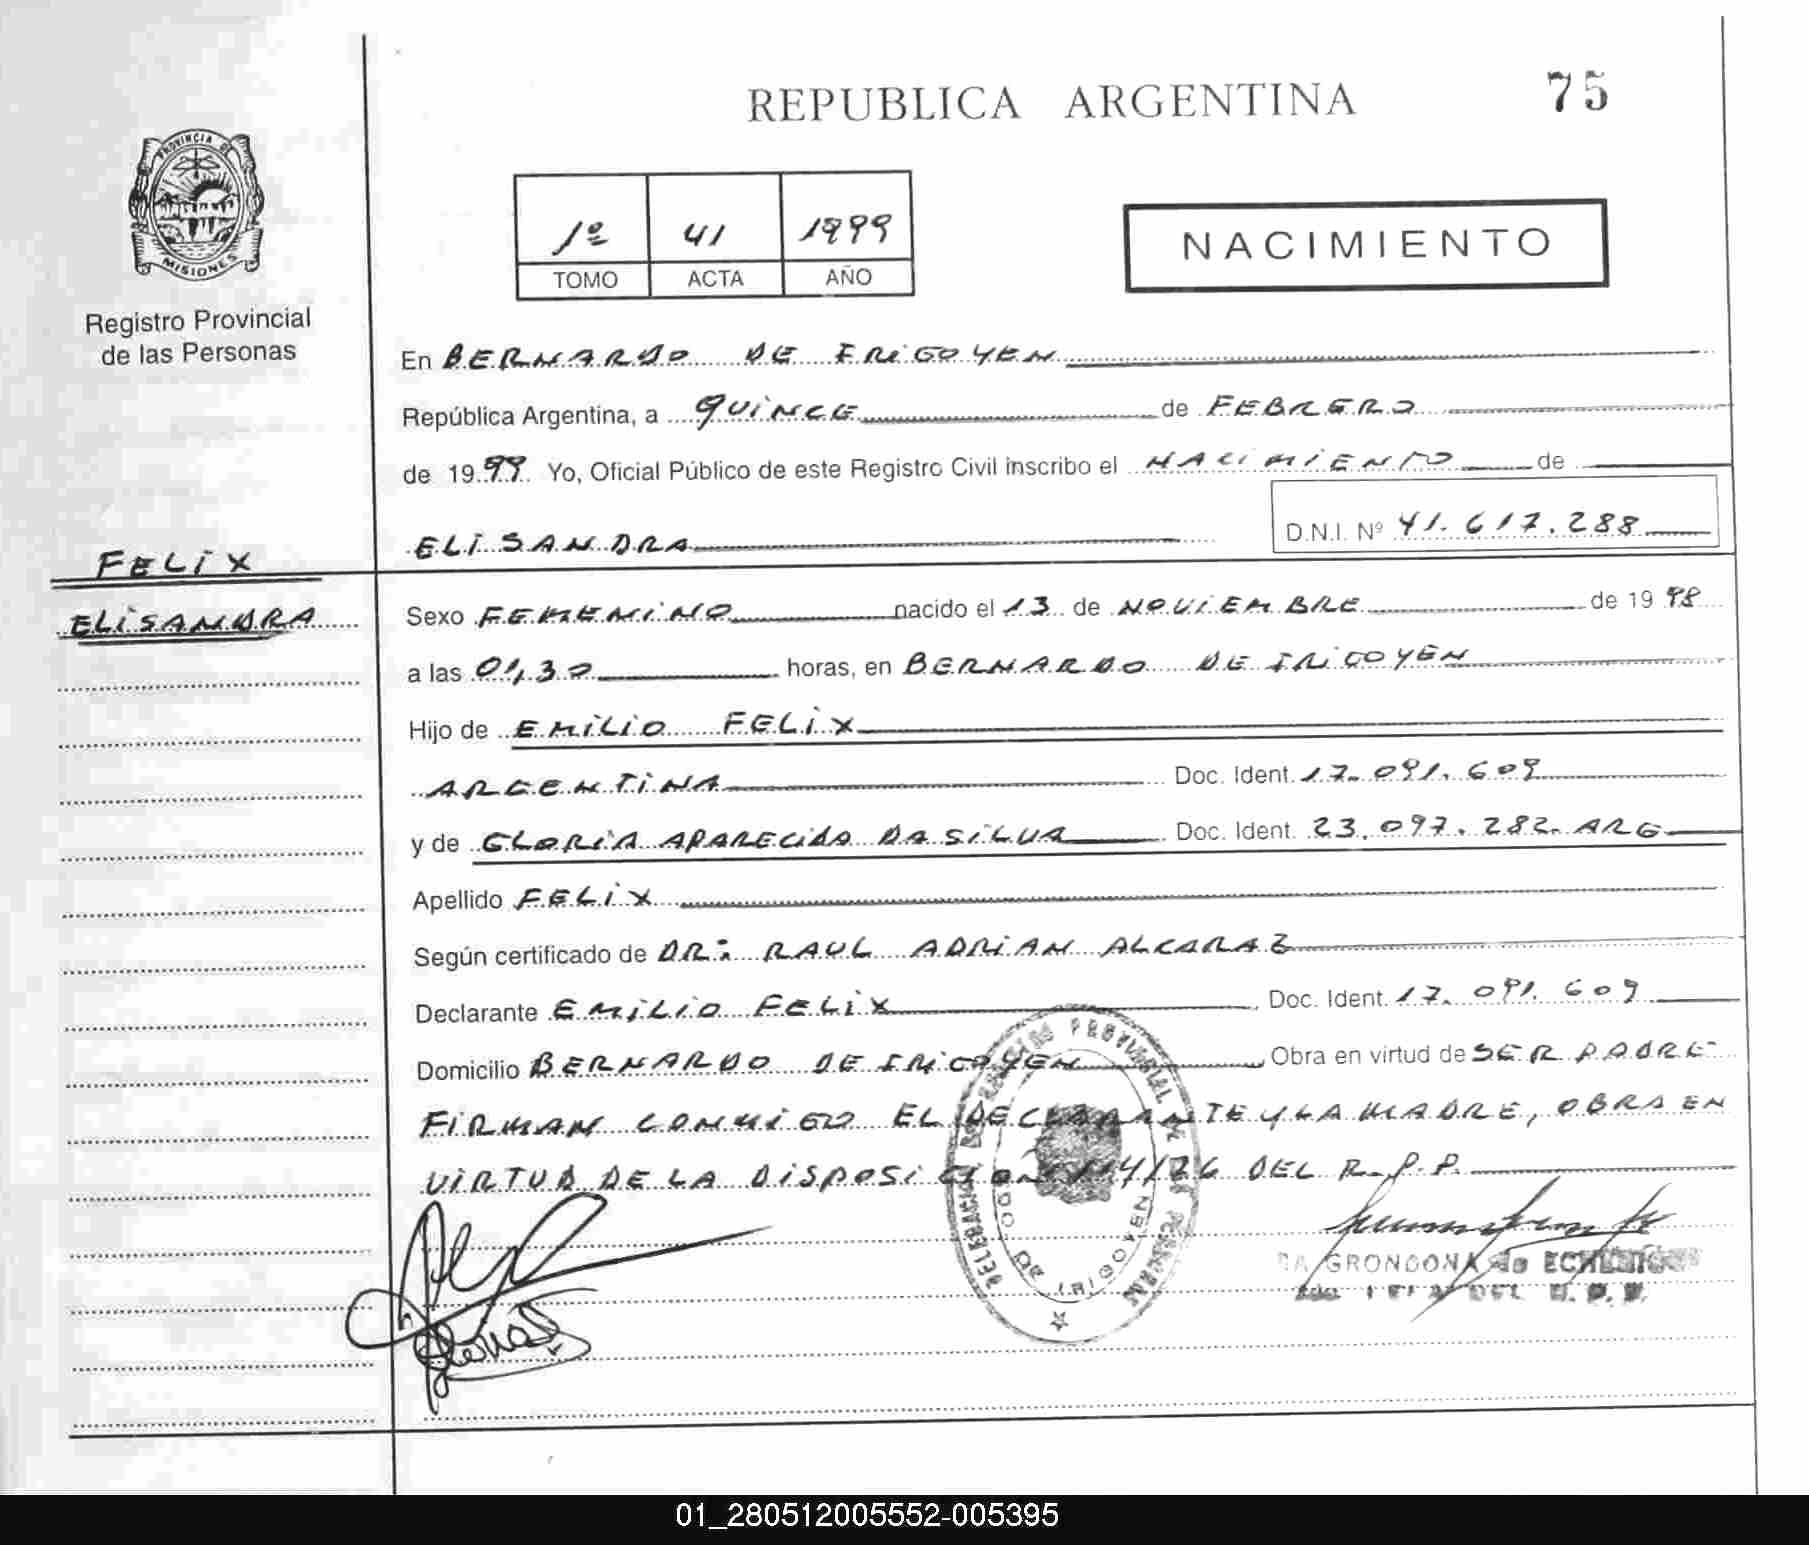 REPUBLICA ARGENTINA
75
PROVINCIA DE
MISIONES
Registro Provincial
de las Personas
1º 41 1999
TOMO ACTA AÑO
NACIMIENTO
En BERNARDO DE IRIGOYEN
República Argentina, a QUINCE de FEBRERO
de 1999 Yo, Oficial Público de este Registro Civil inscribo el NACIMIENTO de
ELISANDRA D.N.I. Nº 41.617.288
FELIX
ELISANDRA
Sexo FEMENINO nacido el 13 de NOVIEMBRE de 1998
a las 01,30 horas, en BERNARDO DE IRIGOYEN
Hijo de EMILIO FELIX
ARGENTINA Doc. Ident. 17.091.609
y de GLORIA APARECIDA DA SILVA Doc. Ident. 23.097.282. ARG
Apellido FELIX
Según certificado de DR: RAUL ADRIAN ALCARAZ
Declarante EMILIO FELIX Doc. Ident. 17.091.609
Domicilio BERNARDO DE IRIGOYEN Obra en virtud de SER PADRE
FIRMAN CONMIGO EL DECLARANTE Y LA MADRE, OBRA EN
VIRTUD DE LA DISPOSICION 114/76 DEL R.P.P.
GRONDONA de
01_280512005552-005395